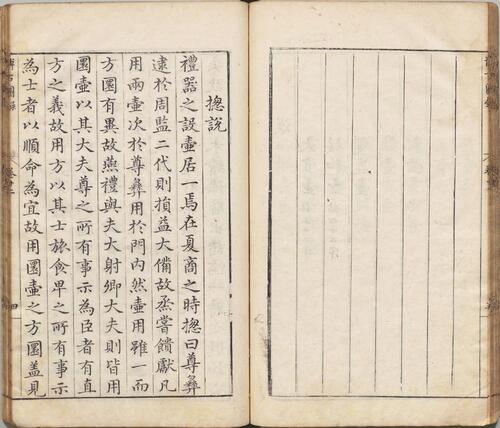 揔說
禮器之設壺居一焉在夏商之時揔曰尊彝
逮於周監二代則損益大備故烝嘗饋獻凡
用兩壺次於尊彝用於門内然壺用雖一而
方圜有異故燕禮與夫大射卿大夫則皆用
圜壺以其大夫尊之所有事示為臣者有直
方之義故用方以其士旅食卑之所有事示
為士者以順命為宜故用圜壺之方圜蓋見